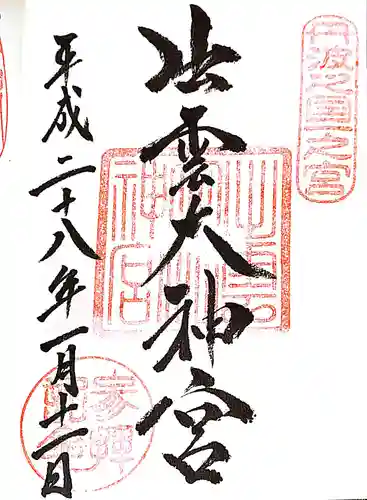 丹波之国一之宮
出雲大神宮
平成二十八年一月十一日